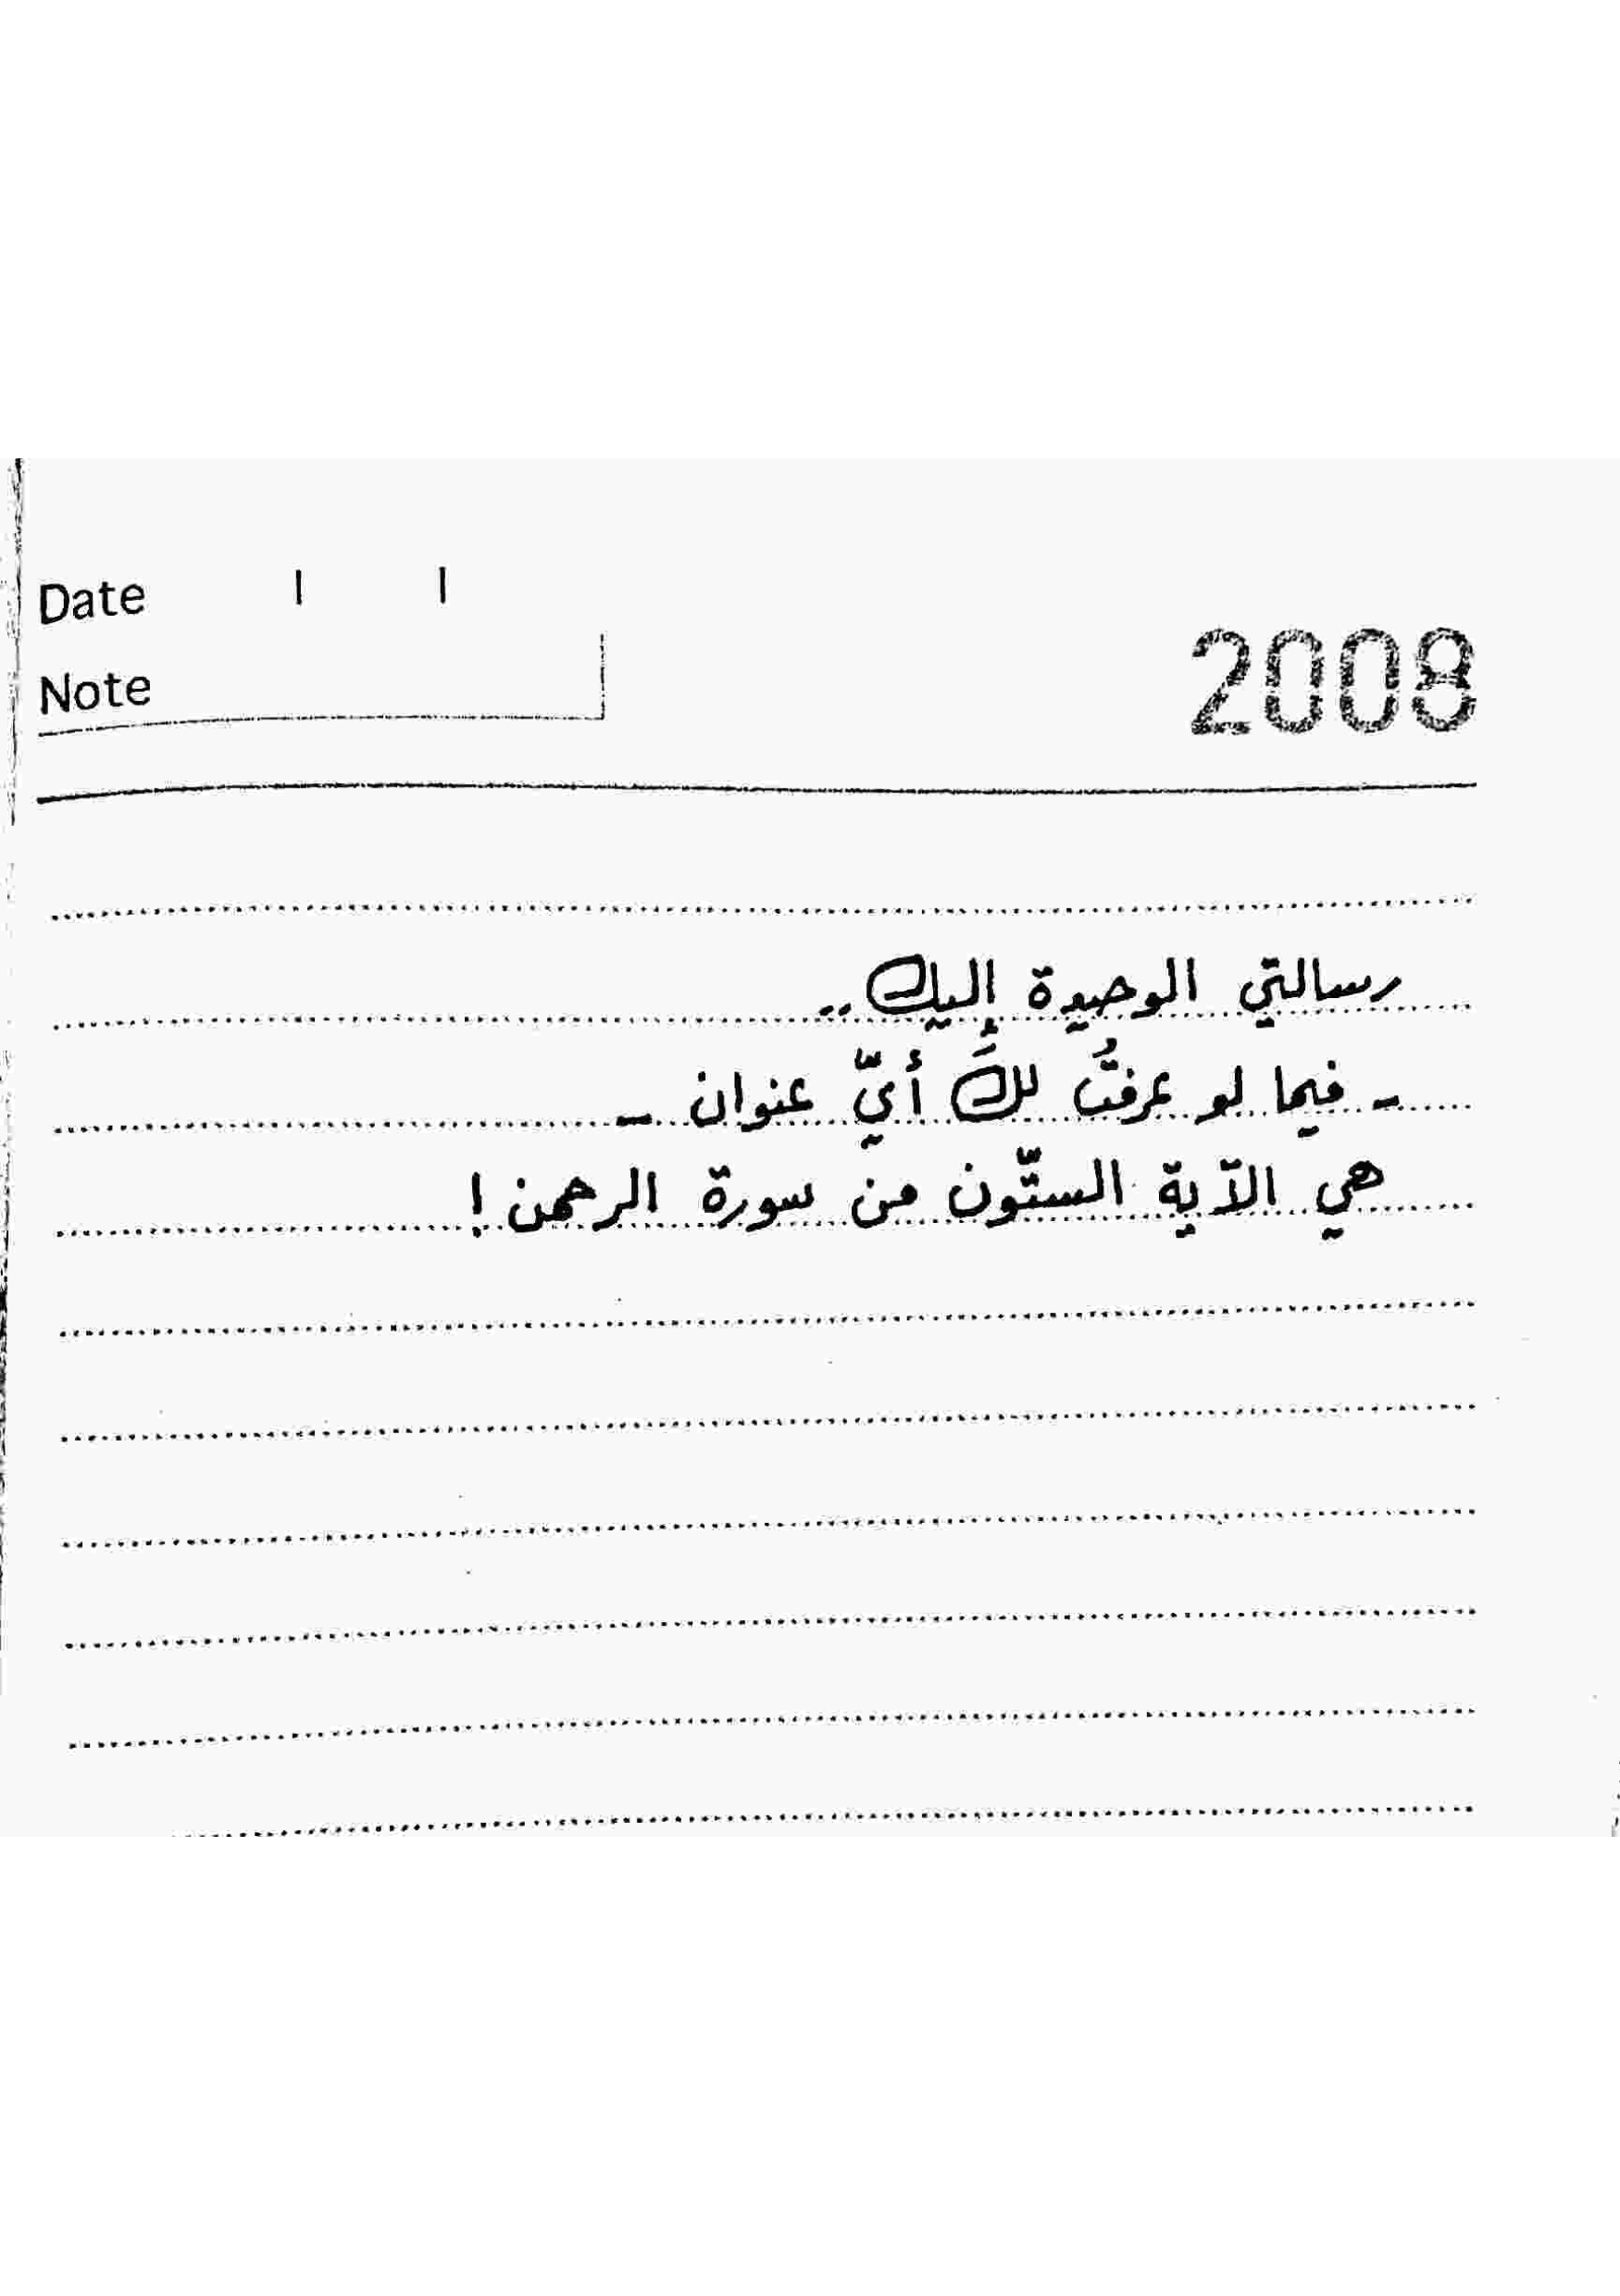 Date / /
Note
2008
رسالتي الوحيدة إليك..
- فيما لو عرفتُ لكَ أيّ عنوان -
هي الآية الستّون من سورة الرحمن!